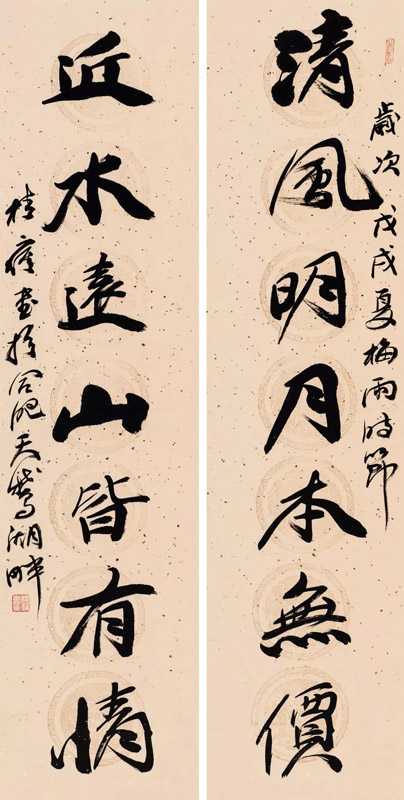 歲次戊戌夏梅雨時節
清風明月本無價
近水遠山皆有情
桂序書於合肥天鵝湖畔